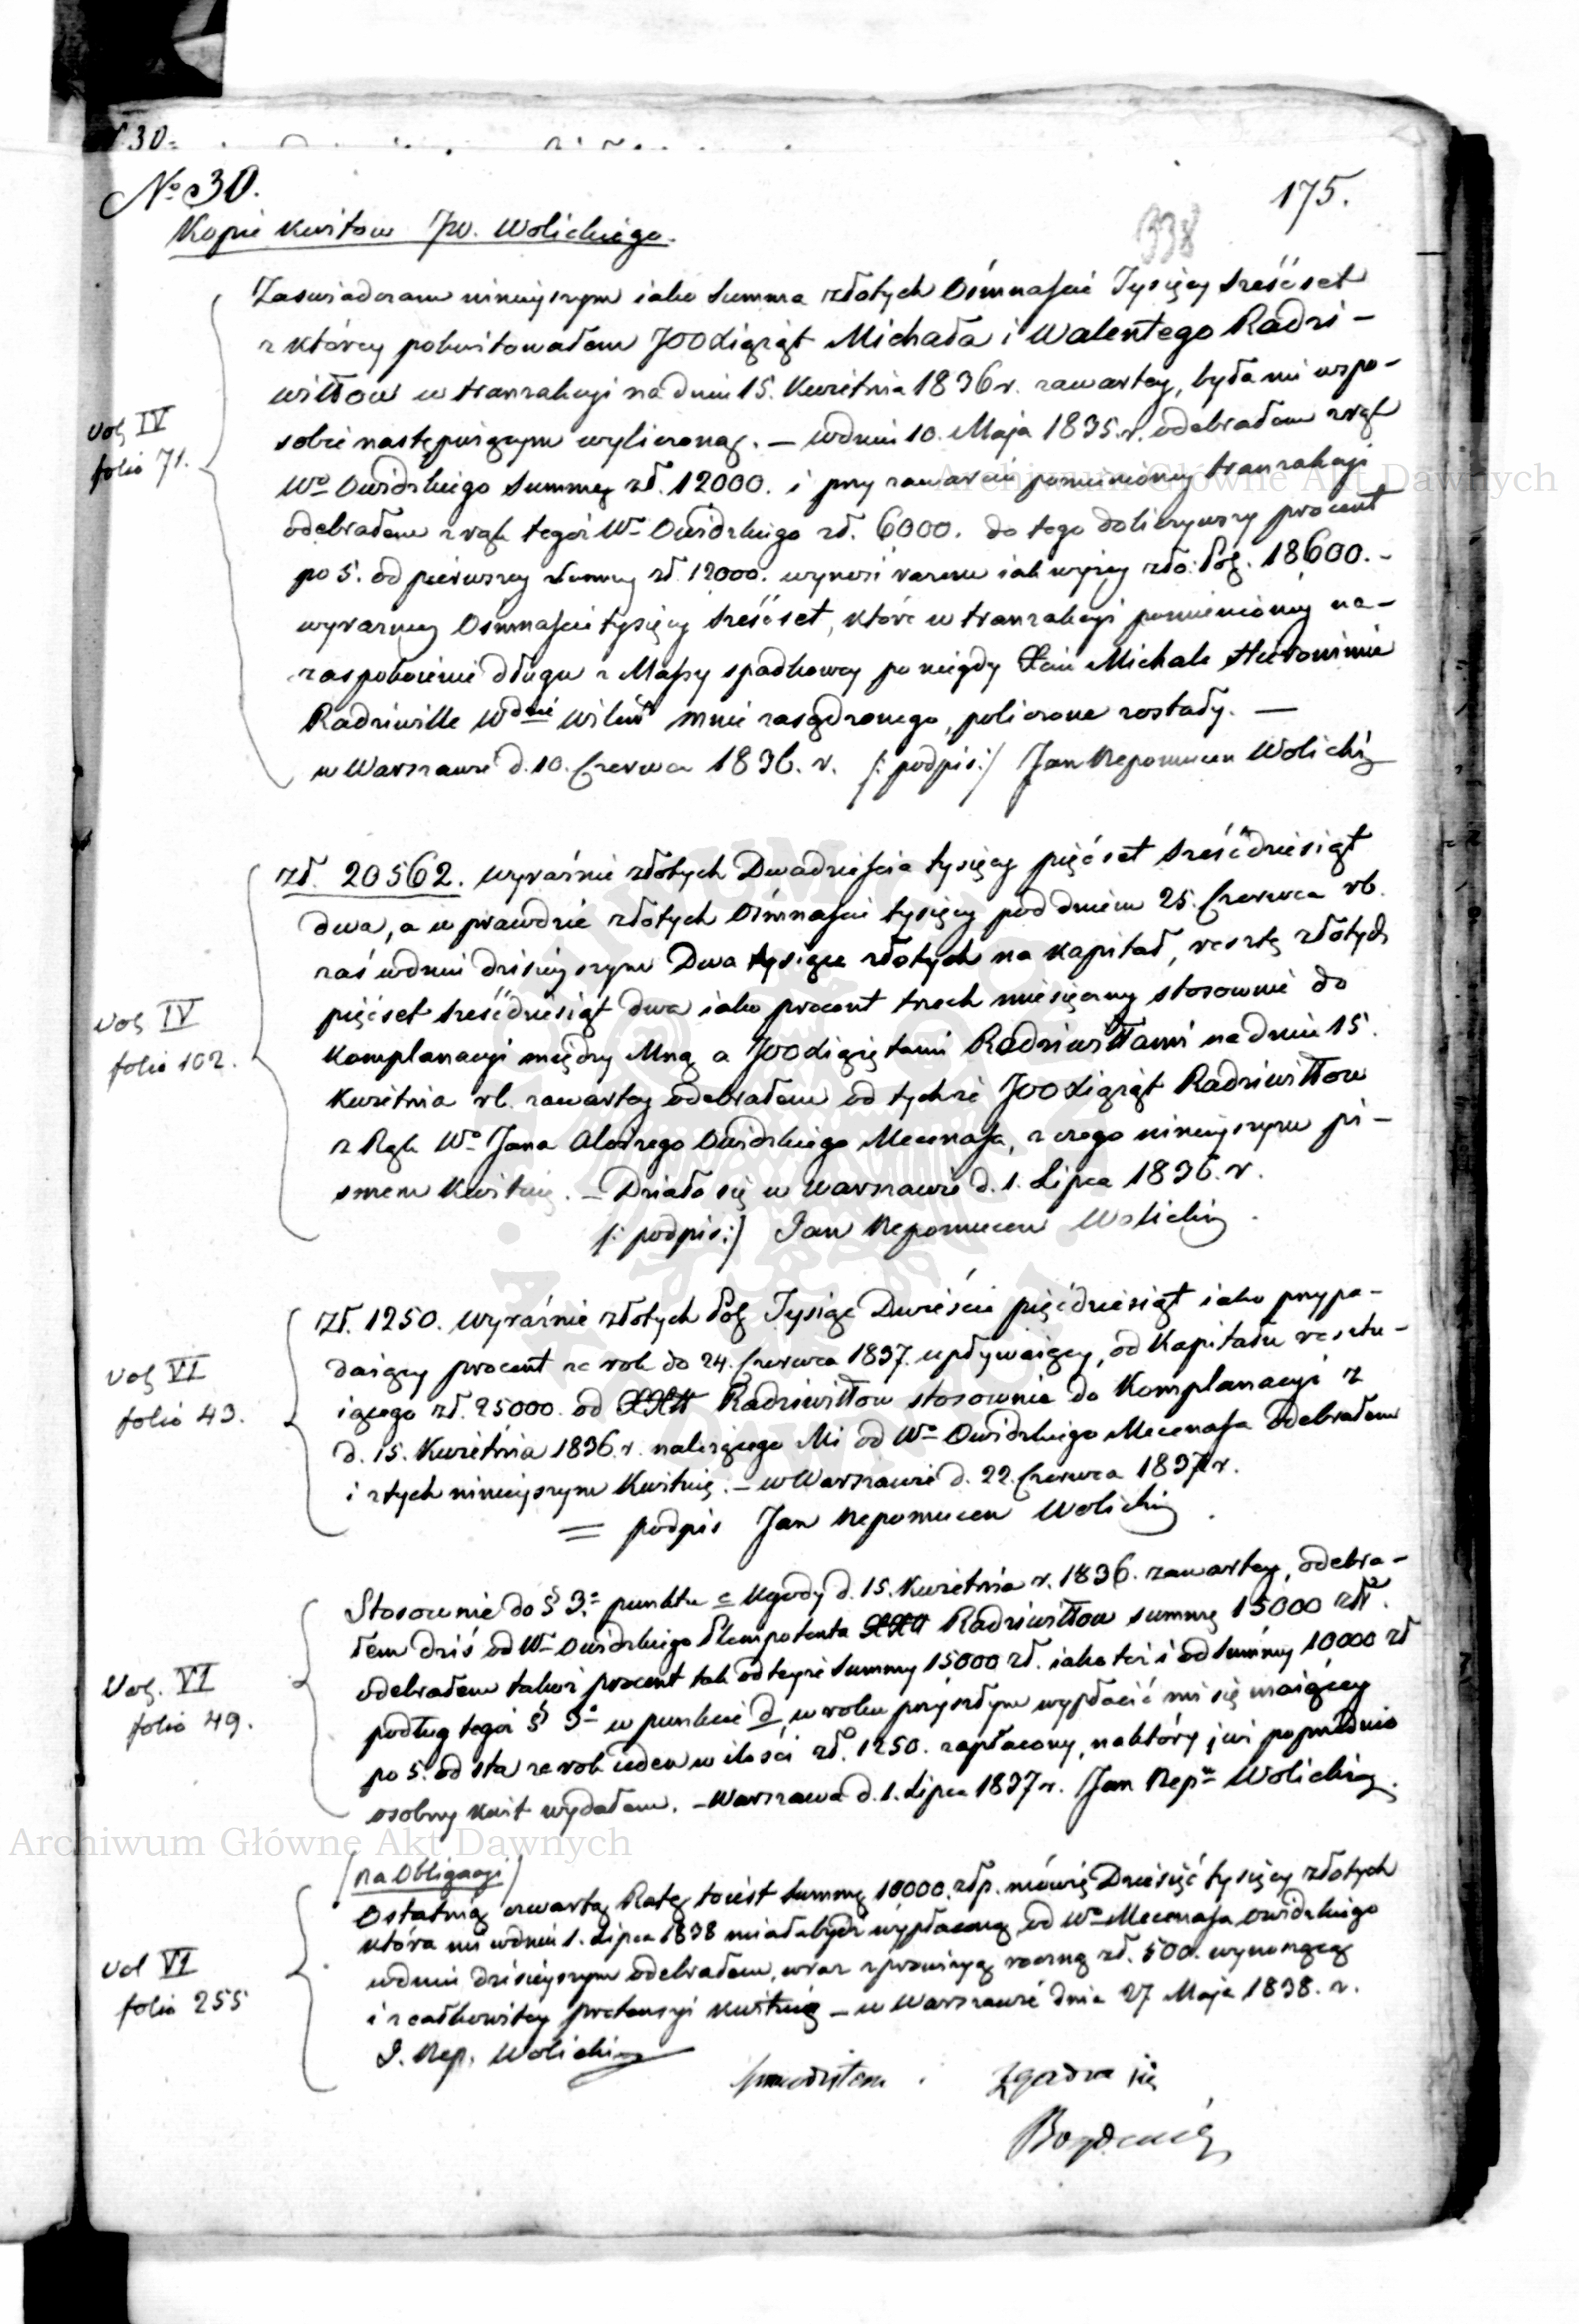 N 30.
No 30.
175.
338
Kopie kwitow JW. Wolickiego.
Zaswiadczam nineyszym iako Summa złotych Ośmnaście Tysięcy sześćset
z którey pokwitowałem JOO Xiążąt Michała i Walentego Radzi-
wiłłow w tranzakcyi na dniu 15. Kwietnia 1836 r. zawartey, była mi wspo-
sobie następuiącym wyliczoną. — w dniu 10. Maja 1835. r. odebrałem z rąk
Wo Owidzkiego Summę zł. 12000. i przy zawarciu pomienioney tranzakcyi
odebrałem z rąk tegoż Wo Owidzkiego zł. 6000. do tego doliczywszy procent
po 5. od pierwszey Summy zł. 12000. wynosi razem iak wyżey zło: Pol. 18600. -
wyrazniey Osmnaście tysięcy sześćset, które w tranzakcyi pomienioney na-
zaspokoienie długu z Massy spadkowey po niegdy Xciu Michale Hieronimie
Radziwille Wdzie Wileń mnie zasądzonego, policzone zostały. —
w Warszawie d. 10. Czerwca 1836. r. /: podpis :/ Jan Nepomucen Wolicki
vol IV
folio 71.
zł. 20562. wyraźnie złotych Dwadzieścia tysięcy pięćset sześćdziesiąt
dwa, a w prawdzie złotych Ośmnaście tysięcy pod dniem 25. Czerwca rb.
zaś w dniu dzisieyszym Dwa tysiące złotych na kapitał, resztę złotych
pięćset sześćdziesiąt dwa iako procent trzech miesięczny stosownie do
Komplanacyi między Mną a JOO Xiążętami Radziwiłłami na dniu 15.
Kwietnia rb. zawartey odebrałem od tychże JOO Xiążąt Radziwiłłow
z Rąk Wo Jana Aloizego Owidzkiego Mecenasa, z czego nineyszym pi-
smem Kwituię. — Działo się w Warszawie d. 1. Lipca 1836. r.
/: podpis :/ Jan Nepomucen Wolicki
vol IV
folio 102.
Zł. 1250. Wyraźnie złotych Pol Tysiąc Dwieście pięćdziesiąt iako przypa-
daiący procent za rok do 24. Czerwca 1837. upływaiący, od Kapitału resztu-
iącego zł. 25000. od XXtt Radziwiłłow stosownie do Komplanacyi z
d. 15. Kwietnia 1836. r. należącego Mi od Wo Owidzkiego Mecenasa odebrałem
i z tych nineyszym Kwituię. — w Warszawie d. 22. Czerwca 1837 r.
= podpis Jan Nepomucen Wolicki
vol VI
folio 43.
Stosownie do § 3o punktu c Ugody d. 15. Kwietnia r. 1836. zawartey, odebra-
łem dziś od Wo Owidzkiego Plenipotenta XXtt Radziwiłłow summę 15000 złł.
odebrałem takoż procent tak od teyże Summy 15000 zł. iako też i od Summy 10000 zł
podług tegoż § 3o w punkcie d w roku przyszłym wypłacić mi się maiącey
po 5. od sta za rok ieden w ilości zł. 1250. zapłacony, na który już poprzednio
osobny kwit wydałem. — Warszawa d. 1. Lipca 1837 r. Jan Nepn Wolicki
Vol. VI
folio 49.
/ na Obligacyi /
Ostatnią czwartą Ratę toiest Summę 10000. złp. mówię Dziesięć tysięcy złotych
która mi w dniu 1. Lipca 1838 miała bydź wypłaconą od Wo Mecenasa Owidzkiego
w dniu dzisieyszym odebrałem, wraz z prowizyą roczną zł. 500. wynoszącą
i z całkowitey pretensyi kwituię — w Warszawie dnia 27 Maja 1838. r.
J. Nep. Wolicki
vol VI
folio 255
Sprawdziłem Zgadza się
Archiwum Główne Akt Dawnych
Archiwum Główne Akt Dawnych